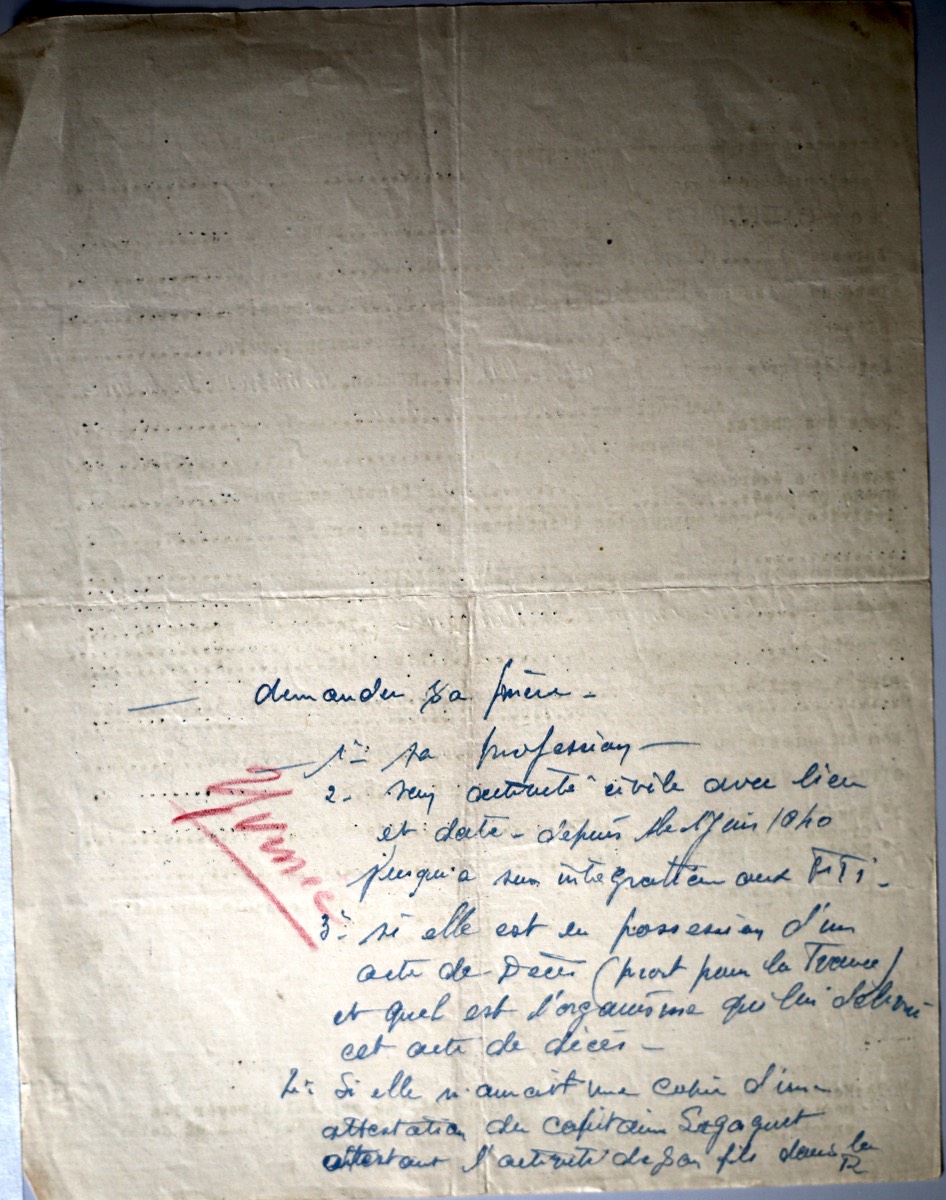 — demander sa
— 1°- sa profession —
2- son activité civile avec lieu
et date - depuis le 1 Juin 1940
jusqu'a son intégration aux FFI -
3°- si elle est en possession d'un
acte de Décès (mort pour la France)
et quel est l'organisme qui lui délivré
cet acte de décès -
Si elle n'aurait une copie d'une
attestation du capitaine
attestant l'activité de son fils dans la
R